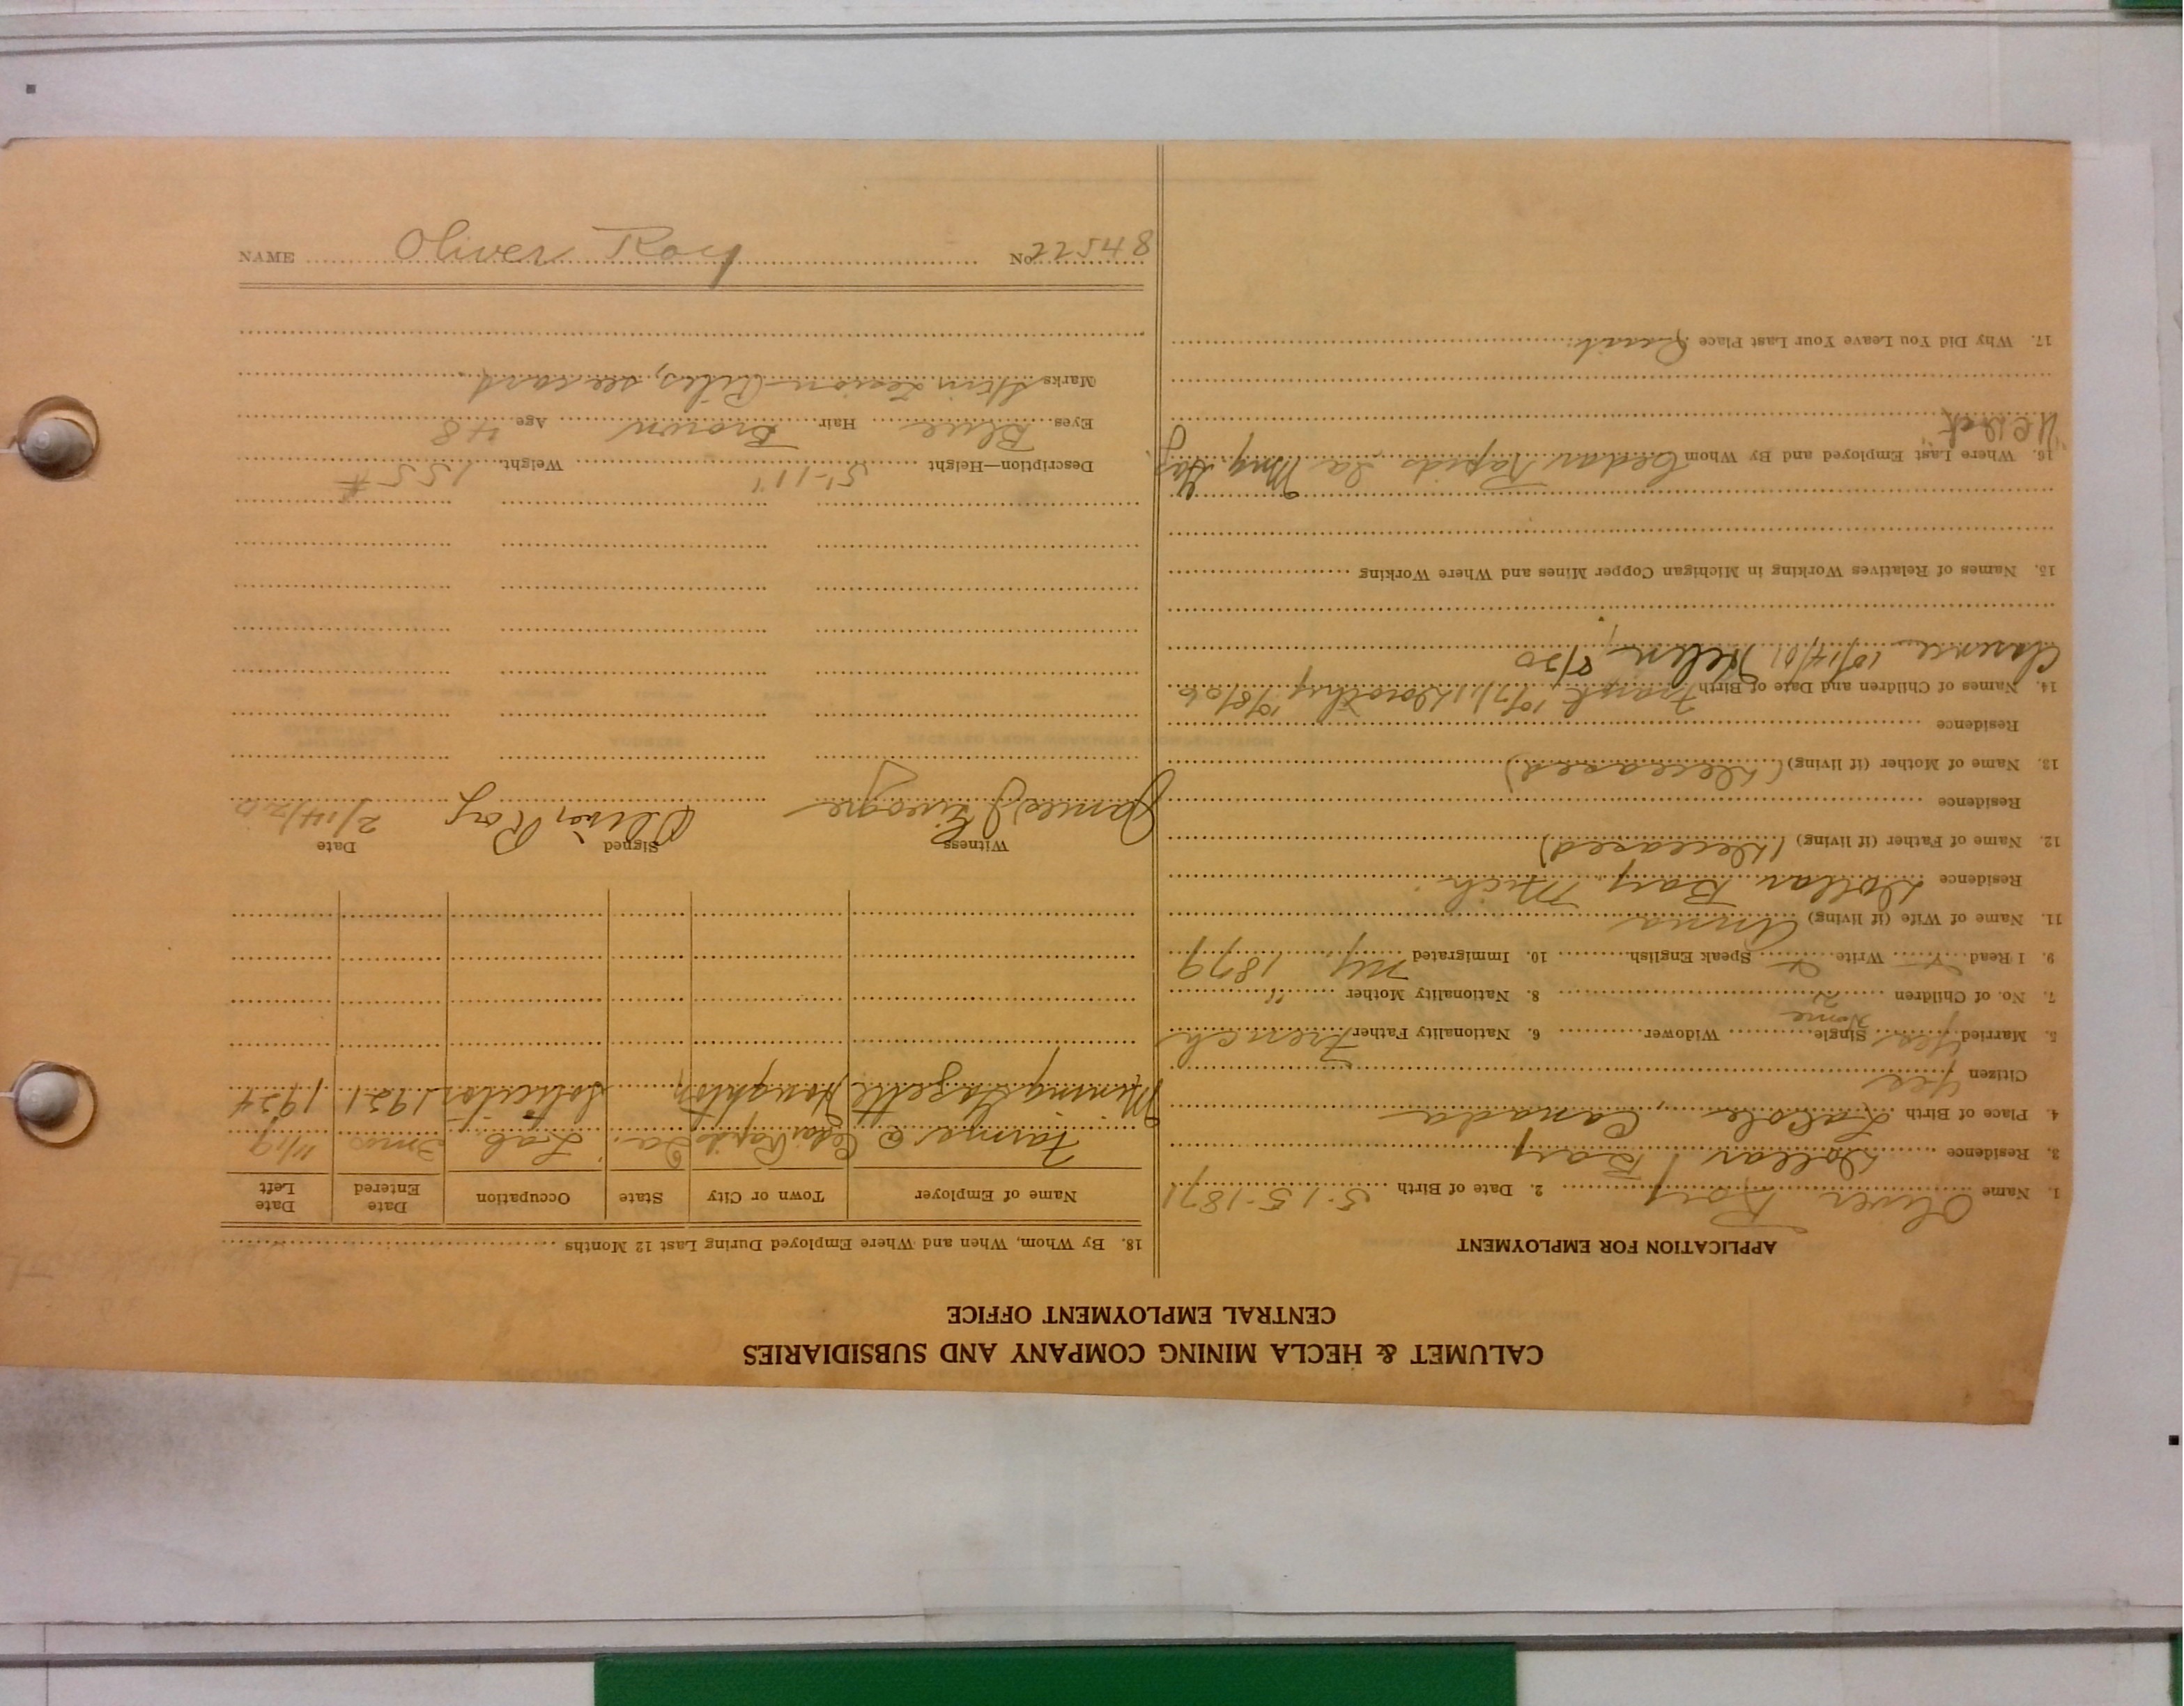 CALUMET & HECLA MINING COMPANY AND SUBSIDIARIES
CENTRAL EMPLOYMENT OFFICE
APPLICATION FOR EMPLOYMENT
1. Name Oliver Roy 2. Date of Birth 5-15-1871
3. Residence Dollar Bay
4. Place of Birth LaCole, Canada
Citizen Yes
5. Married Yes Single Widower 6. Nationality Father French
None
7. No. of Children 2 8. Nationality Mother "
9. I Read Write Speak English 10. Immigrated NY 1879
11. Name of Wife (if living) Anna
Residence Dollar Bay Mich
12. Name of Father (if living) (Deceased)
Residence
13. Name of Mother (if living) (Deceased)
Residence
14. Names of Children and Date of Birth Frank 10/7/11 Dorothy 10/8/06
Clarence 10/14/01 Helen 8/30
15. Names of Relatives Working in Michigan Copper Mines and Where Working
16. Where Last Employed and By Whom Cedar Rapids Ia Mng Gaz
17. Why Did You Leave Your Last Place
18. By Whom, When and Where Employed During Last 12 Months
Name of Employer Town or City State Occupation Date Entered Date Left
Farmer Cedar Rapids Ia Lab 3mo 11/19
Mining Gazette Houghton Solicitor 1921 1924
Witness Signed Date
James J Oliver Roy 2/14/20
Description—Height 5'-11" Weight 155#
Eyes Blue Hair Brown Age 48
Marks Piles, see card
NAME Oliver Roy No. 22548